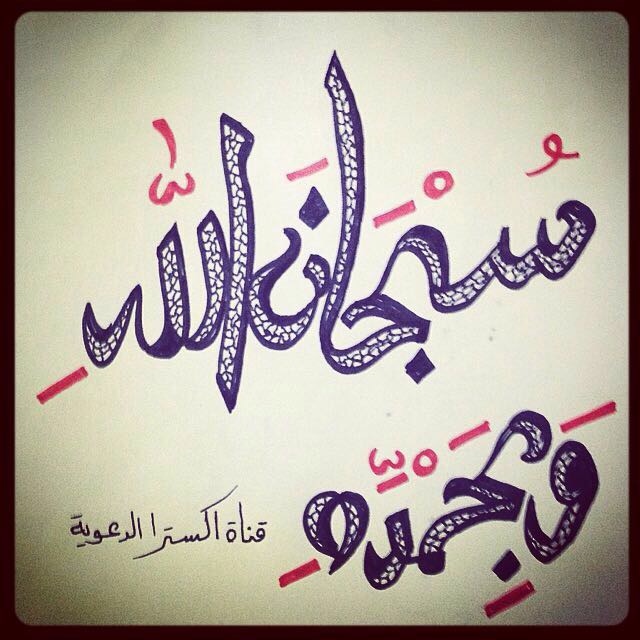 سُبْحَانَ اللّٰهِ
وَبِحَمْدِهِ
قناة اكسترا الدعوية